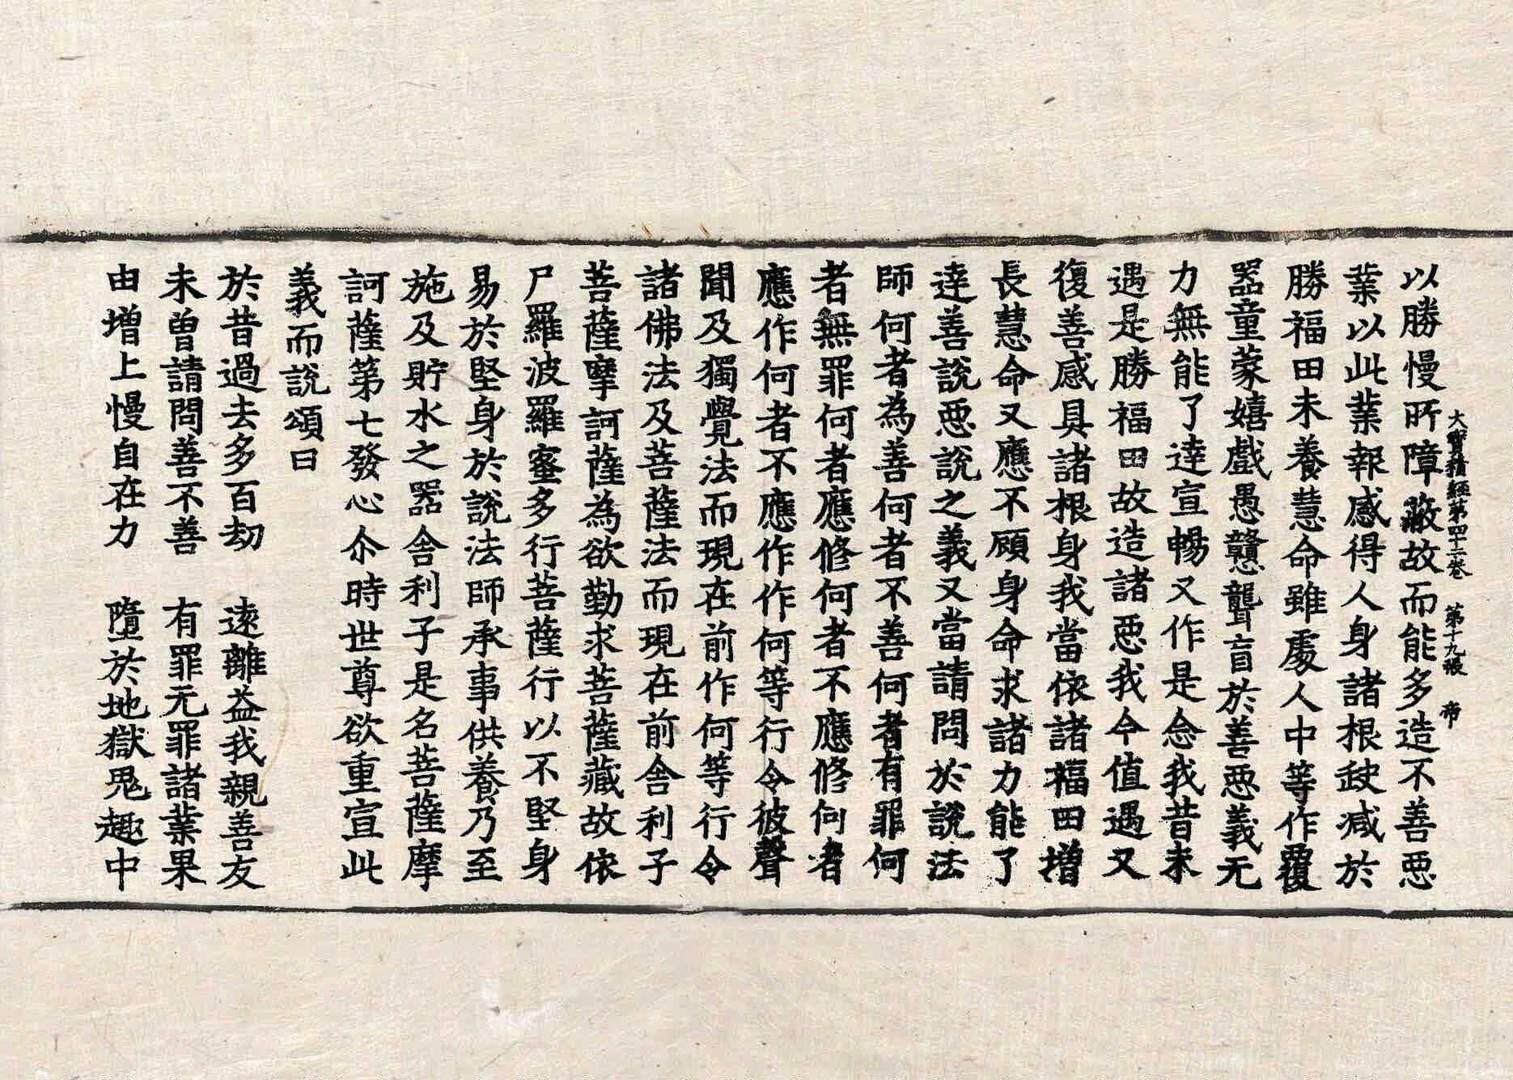 大寳積經第四十二卷　第十九張　帝
以勝慢所障蔽故而能多造不善惡
業以此業報感得人身諸根缺减於
勝福田未養慧命雖處人中等作覆
器童蒙嬉戲愚戇聾盲於善惡義无
力無能了達宣暢又作是念我昔未
遇是勝福田故造諸惡我今值遇又
復善感具諸根身我當依諸福田增
長慧命又應不顧身命求諸力能了
達善說惡說之義又當請問於說法
師何者為善何者不善何者有罪何
者無罪何者應修何者不應修何者
應作何者不應作作何等行令彼聲
聞及獨覺法而現在前作何等行令
諸佛法及菩薩法而現在前舍利子
菩薩摩訶薩為欲勤求菩薩藏故依
尸羅波羅蜜多行菩薩行以不堅身
易於堅身於說法師承事供養乃至
施及貯水之器舍利子是名菩薩摩
訶薩第七發心尒時世尊欲重宣此
義而說頌曰
於昔過去多百劫　遠離益我親善友
未曾請問善不善　有罪无罪諸業果
由增上慢自在力　墮於地獄鬼趣中